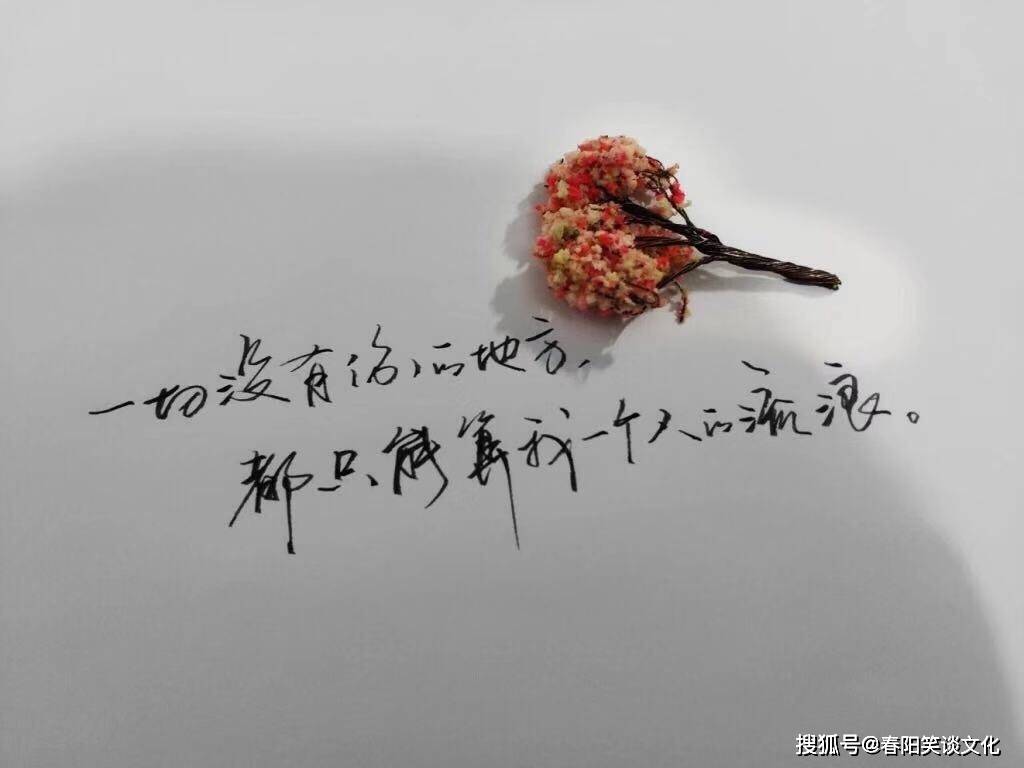 一切没有你的地方，
都只能算我一个人的流浪。
搜狐号@春阳笑谈文化